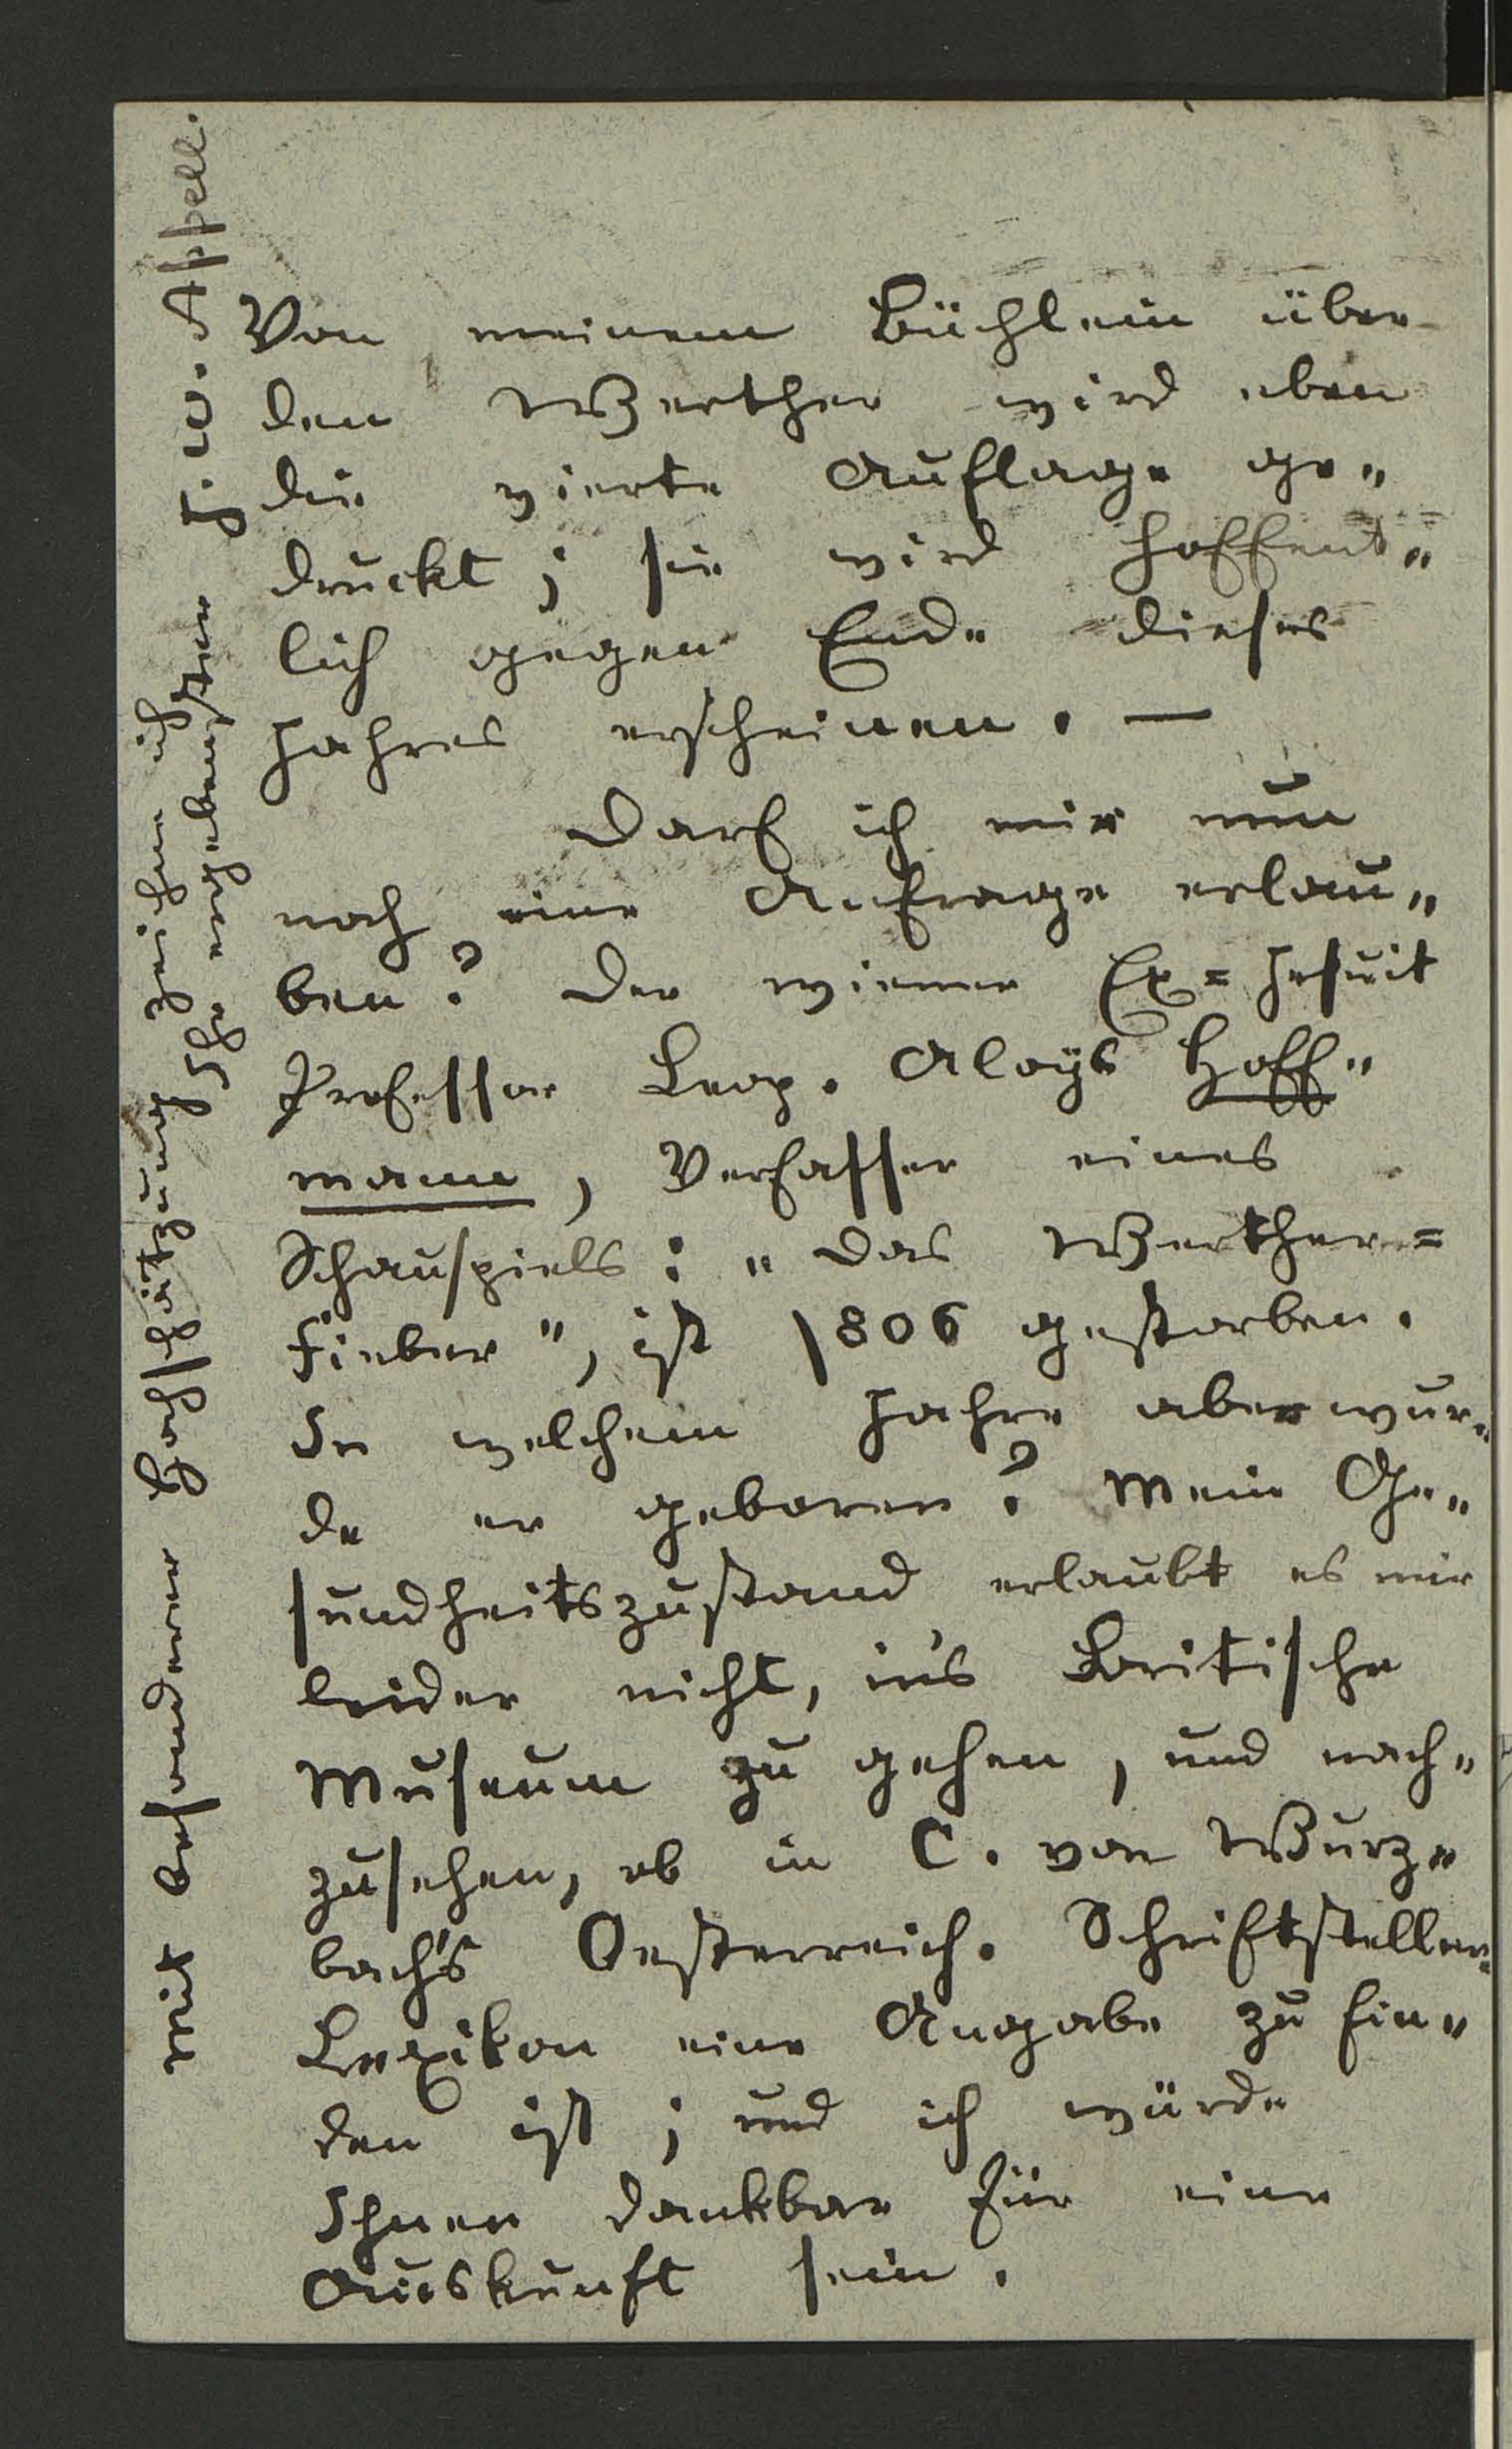 Von meinem Büchlein über
den Werther wird eben
die vierte Auflage ge„
druckt; sie wird hoffent„
lich gegen Ende dieses
Jahres erscheinen. —
Darf ich mir nun
noch eine Anfrage erlau„
ben? Der wiener Ex=Jesuit
Professor Leop. Aloys Hoff„
mann, Verfasser eines
Schauspiels: „Das Werther=
Fieber", ist 1806 gestorben.
In welchem Jahre aber wur„
de er geboren? Mein Ge„
sundheitszustand erlaubt es mir
leider nicht, in's Britische
Museum zu gehen, und nach„
zusehen, ob in C. von Wurz„
bach's Oesterreich. Schriftsteller„
Lexikon eine Angabe zu fin„
den ist; und ich würde
Ihnen dankbar für eine
Auskunft sein.
Mit besonderer Hochschätzung zeichne ich
Ihr ergebenster J. W. Appell.